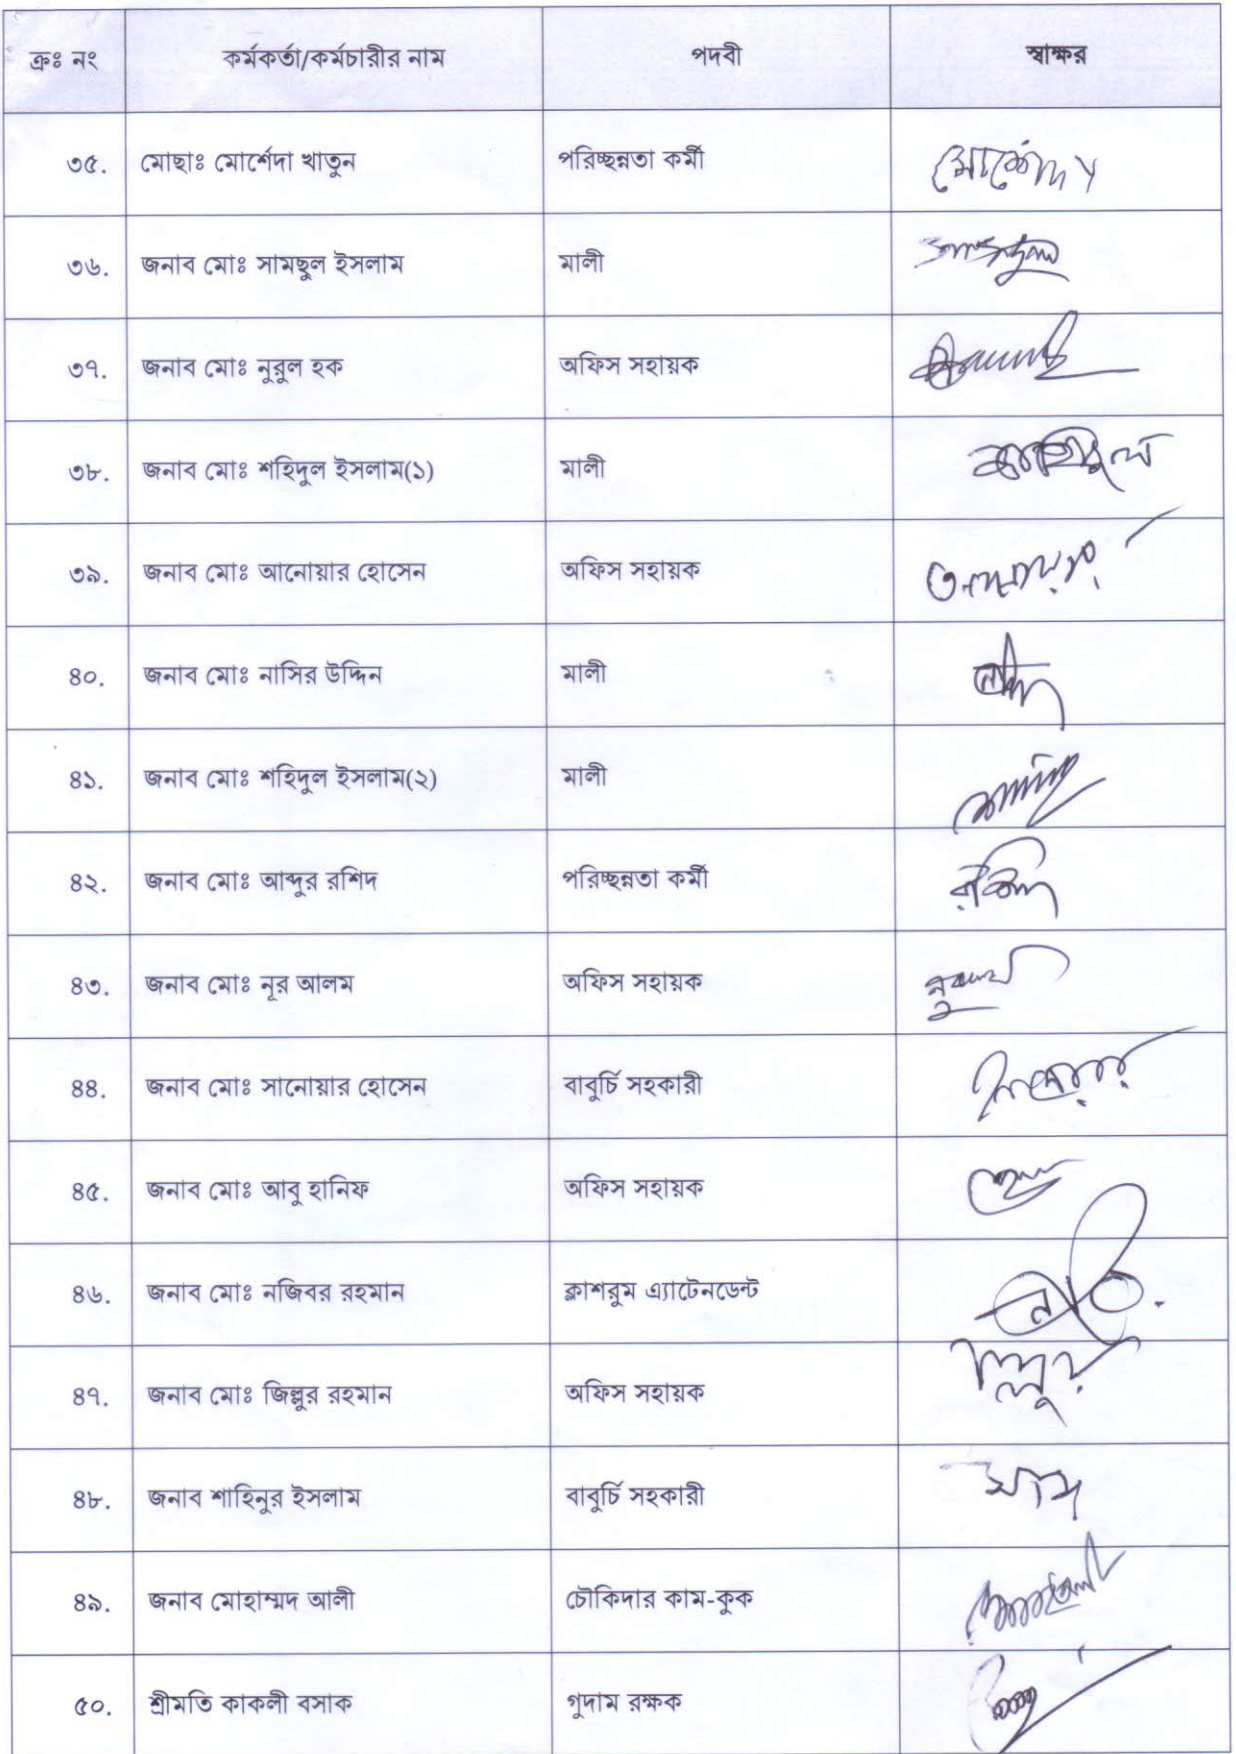 ক্রঃ নং কর্মকর্তা/কর্মচারীর নাম পদবী স্বাক্ষর
৩৫. মোছাঃ মোর্শেদা খাতুন পরিচ্ছন্নতা কর্মী
৩৬. জনাব মোঃ সামছুল ইসলাম মালী
৩৭. জনাব মোঃ নুরুল হক অফিস সহায়ক
৩৮. জনাব মোঃ শহিদুল ইসলাম(১) মালী
৩৯. জনাব মোঃ আনোয়ার হোসেন অফিস সহায়ক
৪০. জনাব মোঃ নাসির উদ্দিন মালী
৪১. জনাব মোঃ শহিদুল ইসলাম(২) মালী
৪২. জনাব মোঃ আব্দুর রশিদ পরিচ্ছন্নতা কর্মী
৪৩. জনাব মোঃ নূর আলম অফিস সহায়ক
৪৪. জনাব মোঃ সানোয়ার হোসেন বাবুর্চি সহকারী
৪৫. জনাব মোঃ আবু হানিফ অফিস সহায়ক
৪৬. জনাব মোঃ নজিবর রহমান ক্লাশরুম এ্যাটেনডেন্ট
৪৭. জনাব মোঃ জিল্লুর রহমান অফিস সহায়ক
৪৮. জনাব শাহিনুর ইসলাম বাবুর্চি সহকারী
৪৯. জনাব মোহাম্মদ আলী চৌকিদার কাম-কুক
৫০. শ্রীমতি কাকলী বসাক গুদাম রক্ষক